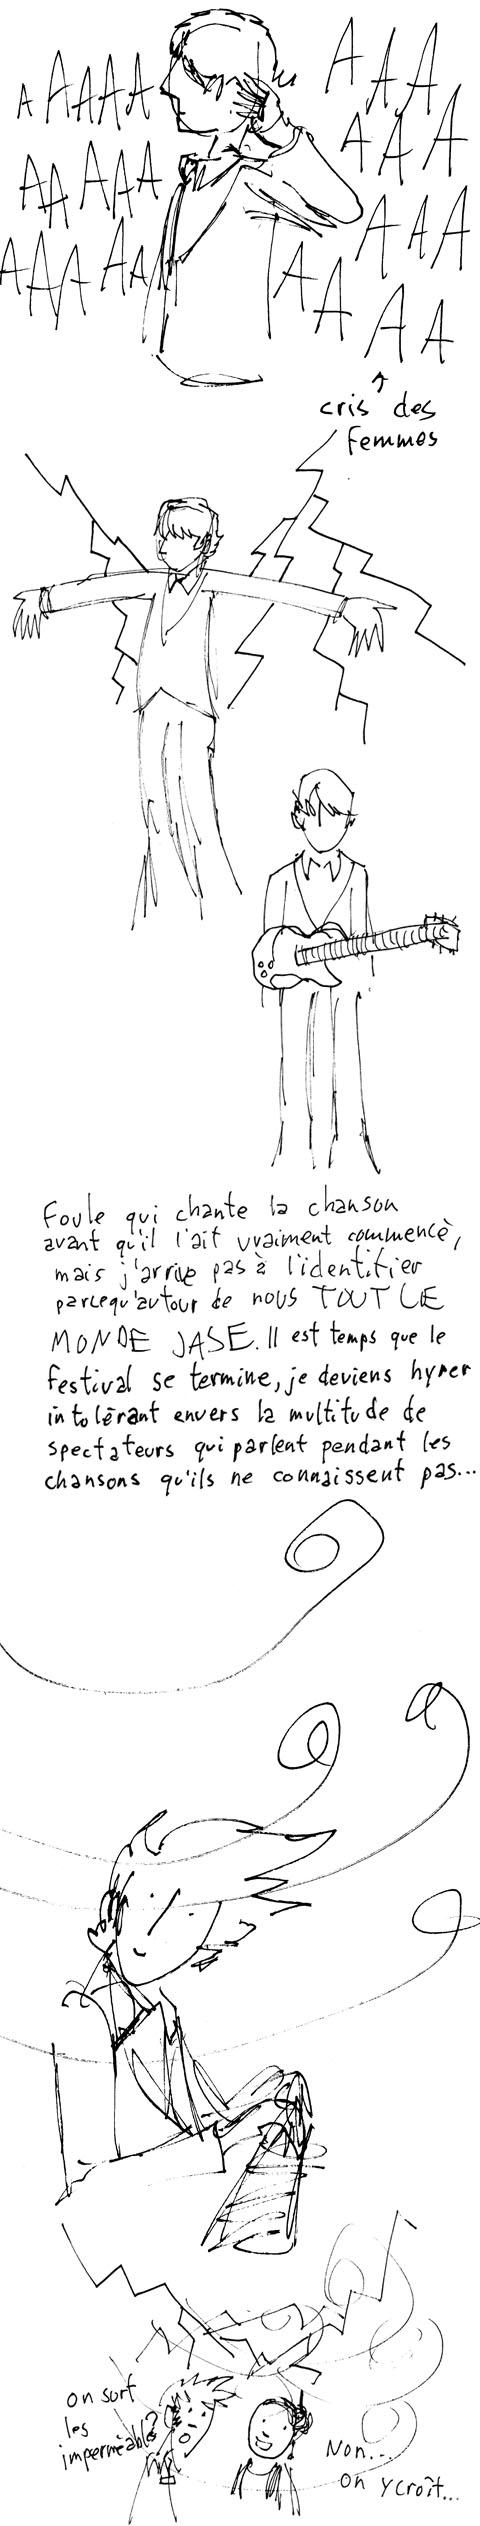 A AAAA A A A
AA AAA A A A
AAA AAA A A A
A A A A
cris des
femmes
Foule qui chante la chanson
avant qu'il l'ait vraiment commencè,
mais j'arrive pas à l'identifier
parcequ'autour de nous TOUT LE
MONDE JASE. Il est temps que le
festival se termine, je deviens hyper
intolérant envers la multitude de
spectateurs qui parlent pendant les
chansons qu'ils ne connaissent pas...
on sort
les
imperméables?
Non...
on y croît...